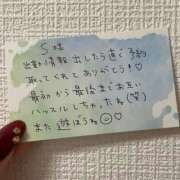 S様
出勤情報出したら直ぐ予約
取ってくれてありがとう!♡
最初から最後までお互い
ハッスルしちゃったね(笑)
また遊ぼうね☺♡